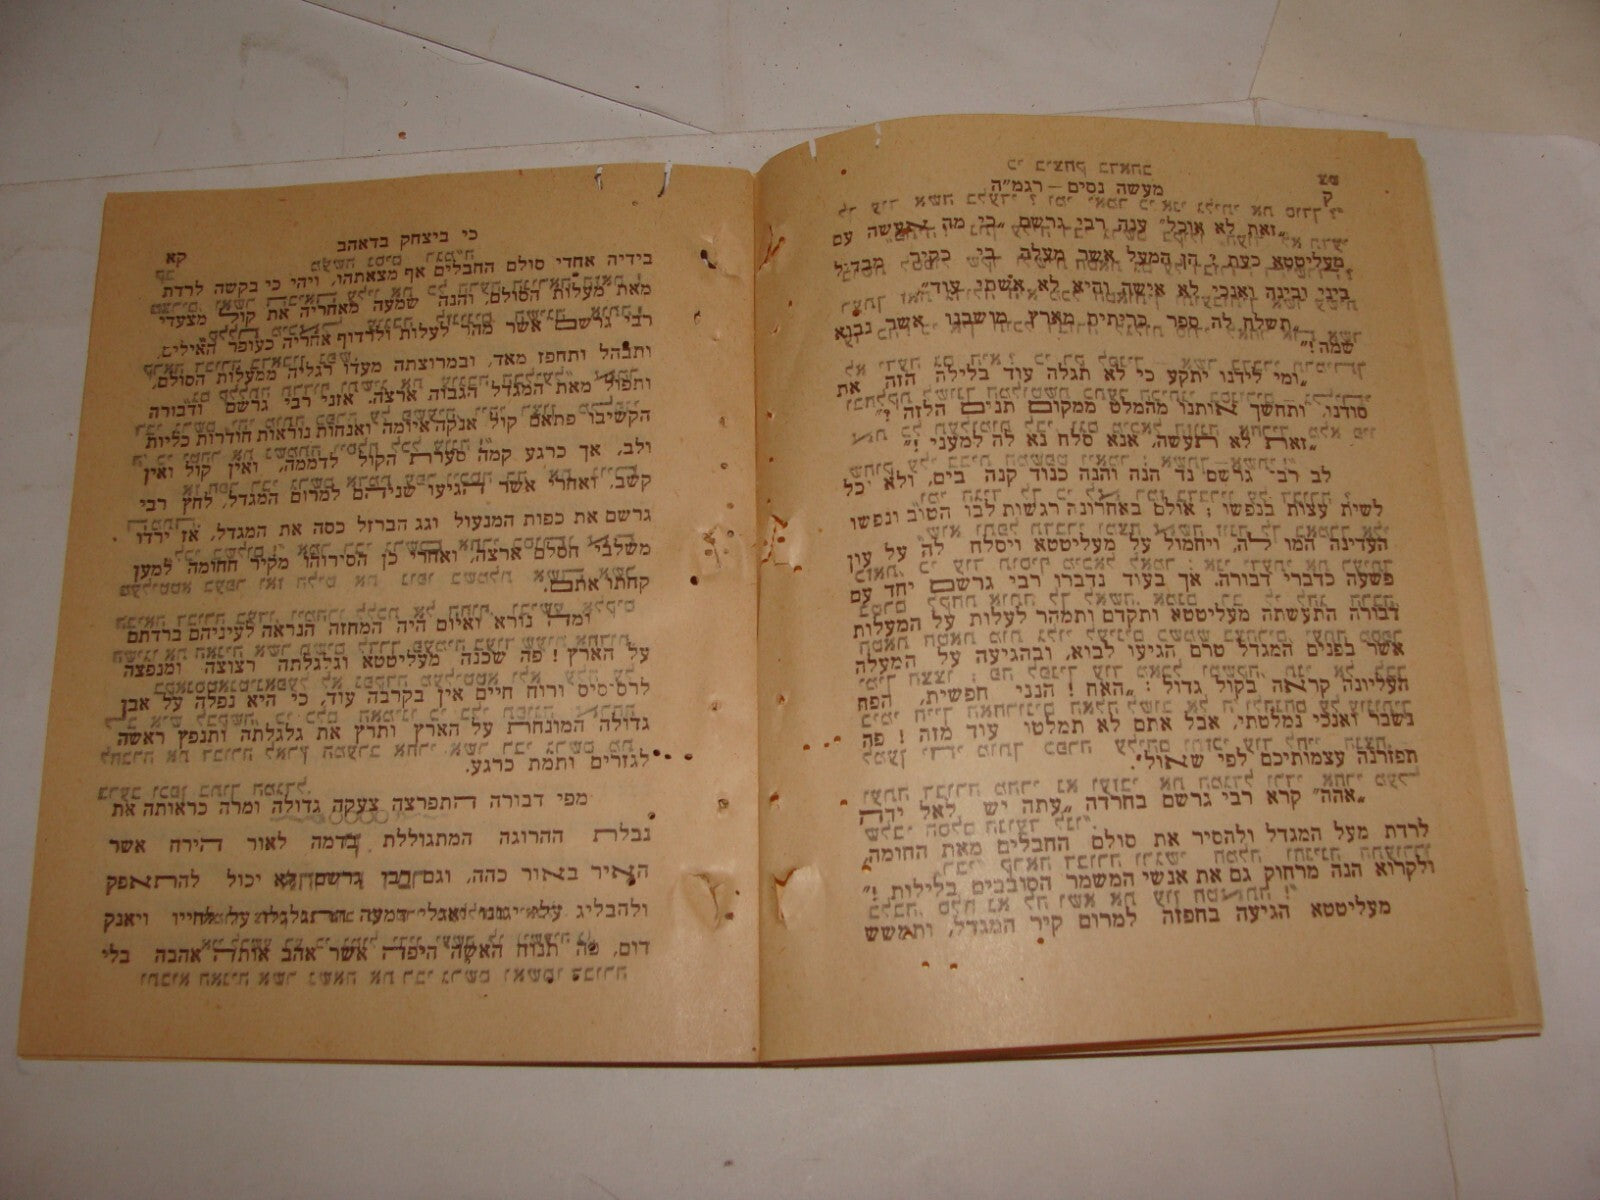 ק
מעשה נסים — רגמ״ה
„זאת לא אוכל״ ענה רבי גרשם „כי מה אעשה עם
מעליטטא כעת? הן המעל אשר מעלה בי כקיר מבדיל
ביני ובינה ואנכי לא אישה והיא לא אשתי עוד״
„תשלח לה ספר כריתים מארץ מושבנו אשר נבוא
שמה!״
„ומי לידנו יתקע כי לא תגלה עוד בלילה הזה את
סודנו, ותחשך אותנו מהמלט ממקום תנים הלזה?״
„זאת לא תעשה, אנא סלח נא לה למעני!״
לב רבי גרשם נד הנה והנה כנוד קנה בים, ולא יכל
לשית עצות בנפשו; אולם באחרונה רגשות לבו הטוב ונפשו
העדינה המו לה, ויחמול על מעליטטא ויסלח לה על עון
פשעה כדברי דבורה. אך בעוד נדברו רבי גרשם יחד עם
דבורה התעשתה מעליטטא ותקדם ותמהר לעלות על המעלות
אשר בפנים המגדל טרם הגיעו לבוא, ובהגיעה על המעלה
העליונה קראה בקול גדול: „האח! הנני חפשית, הפח
נשבר ואנכי נמלטתי, אבל אתם לא תמלטו עוד מזה! פה
תפזרנה עצמותיכם לפי שאול״.
„אהה״ קרא רבי גרשם בחרדה „עתה יש לאל ידה
לרדת מעל המגדל ולהסיר את סולם החבלים מאת החומה,
ולקרוא הנה מרחוק גם את אנשי המשמר הסובבים בלילות!״
מעליטטא הגיעה בחפזה למרום קיר המגדל, ותמשש
כי ביצחק בדאהב
קא
בידיה אחדי סולם החבלים אף מצאתהו, ויהי כי בקשה לרדת
מאת מעלות הסולם, והנה שמעה מאחריה את קול מצעדי
רבי גרשם אשר מהר לעלות ולרדוף אחריה כעופר האילים,
ותבהל ותחפז מאד, ובמרוצתה מעדו רגליה ממעלות הסולם,
ותפול מאת המגדל הגבוה ארצה. אזני רבי גרשם ודבורה
הקשיבו פתאם קול אנקה איומה ואנחות נוראות חודרות כליות
ולב, אך כרגע קמה סערת הקול לדממה, ואין קול ואין
קשב, ואחרי אשר הגיעו שניהם למרום המגדל, לחץ רבי
גרשם את כפות המנעול וגג הברזל כסה את המגדל, אז ירדו
משלבי הסלם ארצה, ואחרי כן הסירוהו מקיר החומה למען
קחתו אתם.
ומה נורא ואיום היה המחזה הנראה לעיניהם ברדתם
על הארץ! פה שכנה מעליטטא וגלגלתה רצוצה ומנפצה
לרסיסים ורוח חיים אין בקרבה עוד, כי היא נפלה על אבן
גדולה המונחת על הארץ ותרץ את גלגלתה ותנפץ ראשה
לגזרים ותמת כרגע.
מפי דבורה התפרצה צעקה גדולה ומרה כראותה את
נבלת ההרוגה המתגוללת בדמה לאור הירח אשר
האיר באור כהה, וגם רבי גרשם לא יכול להתאפק
ולהבליג עלי יגונו ואגלי דמעה התגלגלו על לחייו ויאנק
דום, פה תנוח האשה היפה אשר אהב אותה אהבה בלי